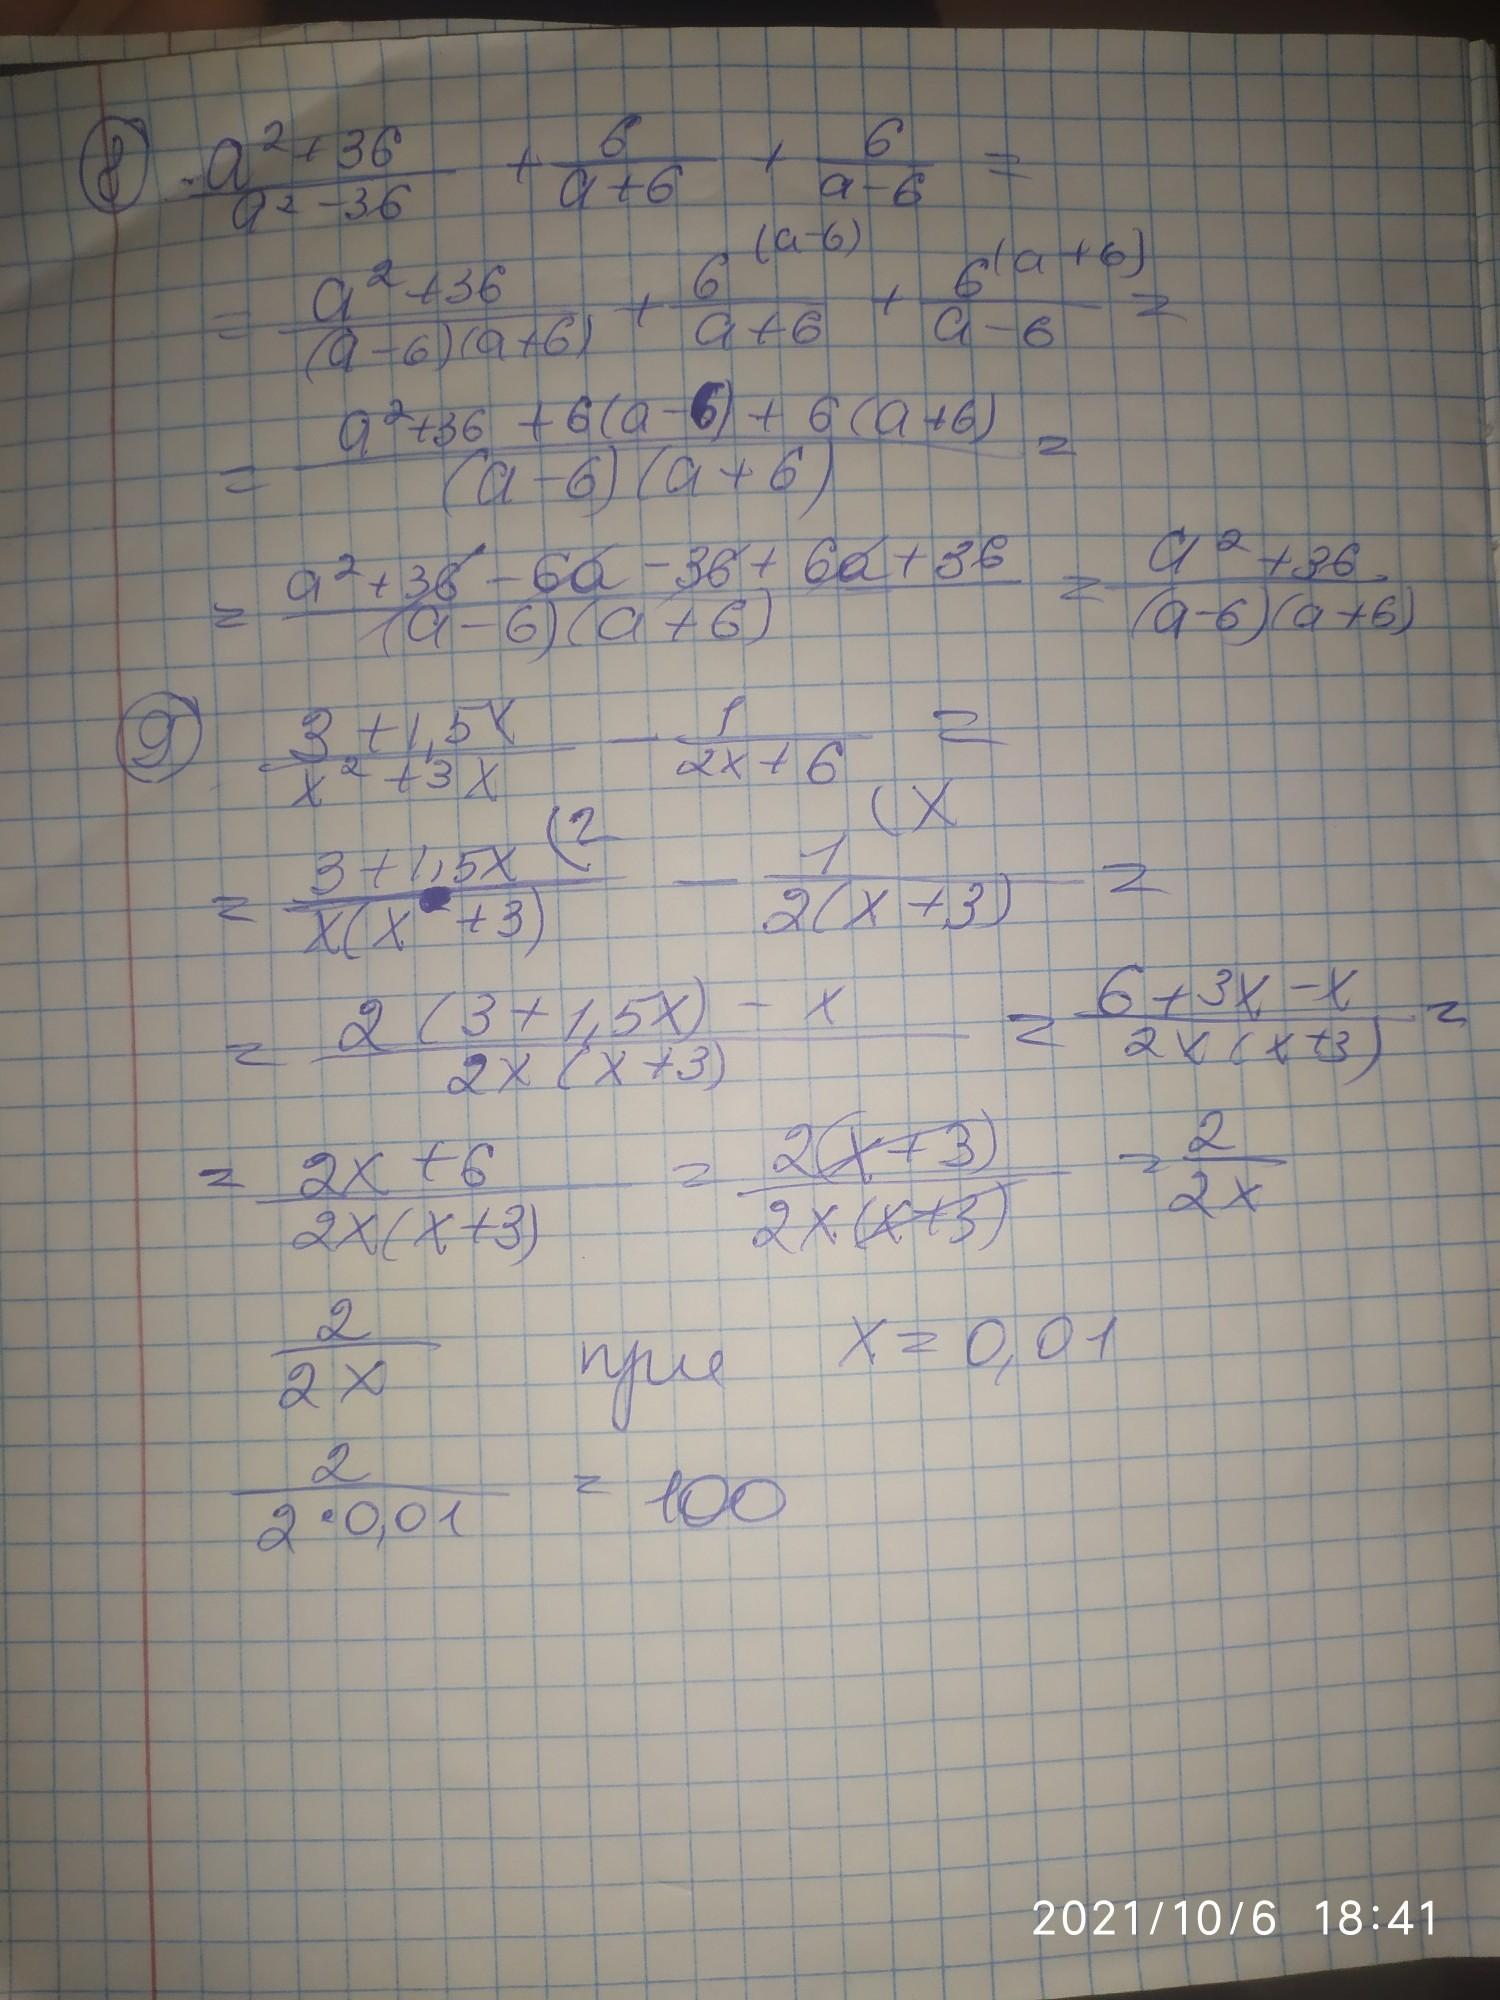 ⑧ a²+36/a²-36 + 6/a+6 + 6/a-6 =
= a²+36/(a-6)(a+6) + 6(a-6)/a+6 + 6(a+6)/a-6 =
= a²+36+6(a-6)+6(a+6)/(a-6)(a+6) =
= a²+36-6a-36+6a+36/(a-6)(a+6) = a²+36/(a-6)(a+6)
⑨ 3+1,5x/x²+3x - 1/2x+6 =
= 3+1,5x(2/x(x+3) - 1(x/2(x+3) =
= 2(3+1,5x)-x/2x(x+3) = 6+3x-x/2x(x+3) =
= 2x+6/2x(x+3) = 2(x+3)/2x(x+3) = 2/2x
2/2x при x=0,01
2/2·0,01 = 100
2021/10/6 18:41